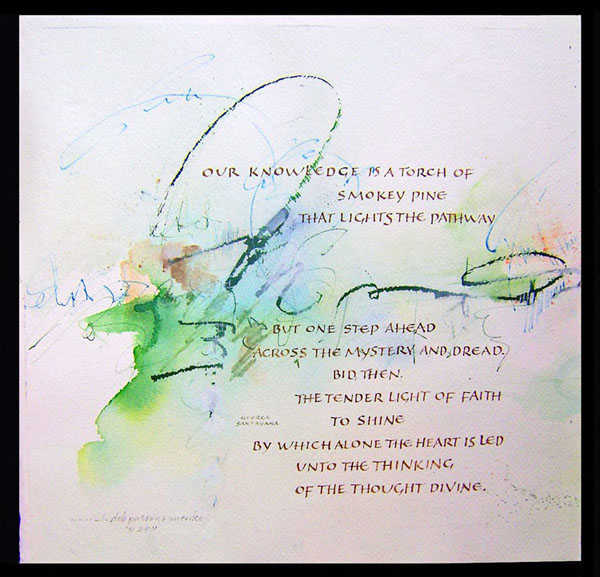 OUR KNOWLEDGE IS A TORCH OF
SMOKEY PINE
THAT LIGHTS THE PATHWAY
BUT ONE STEP AHEAD
ACROSS THE MYSTERY AND, DREAD.
BID, THEN.
THE TENDER LIGHT OF FAITH
TO SHINE
GEORGE
SANTAYANA
BY WHICH ALONE THE HEART IS LED
UNTO THE THINKING
OF THE THOUGHT DIVINE.